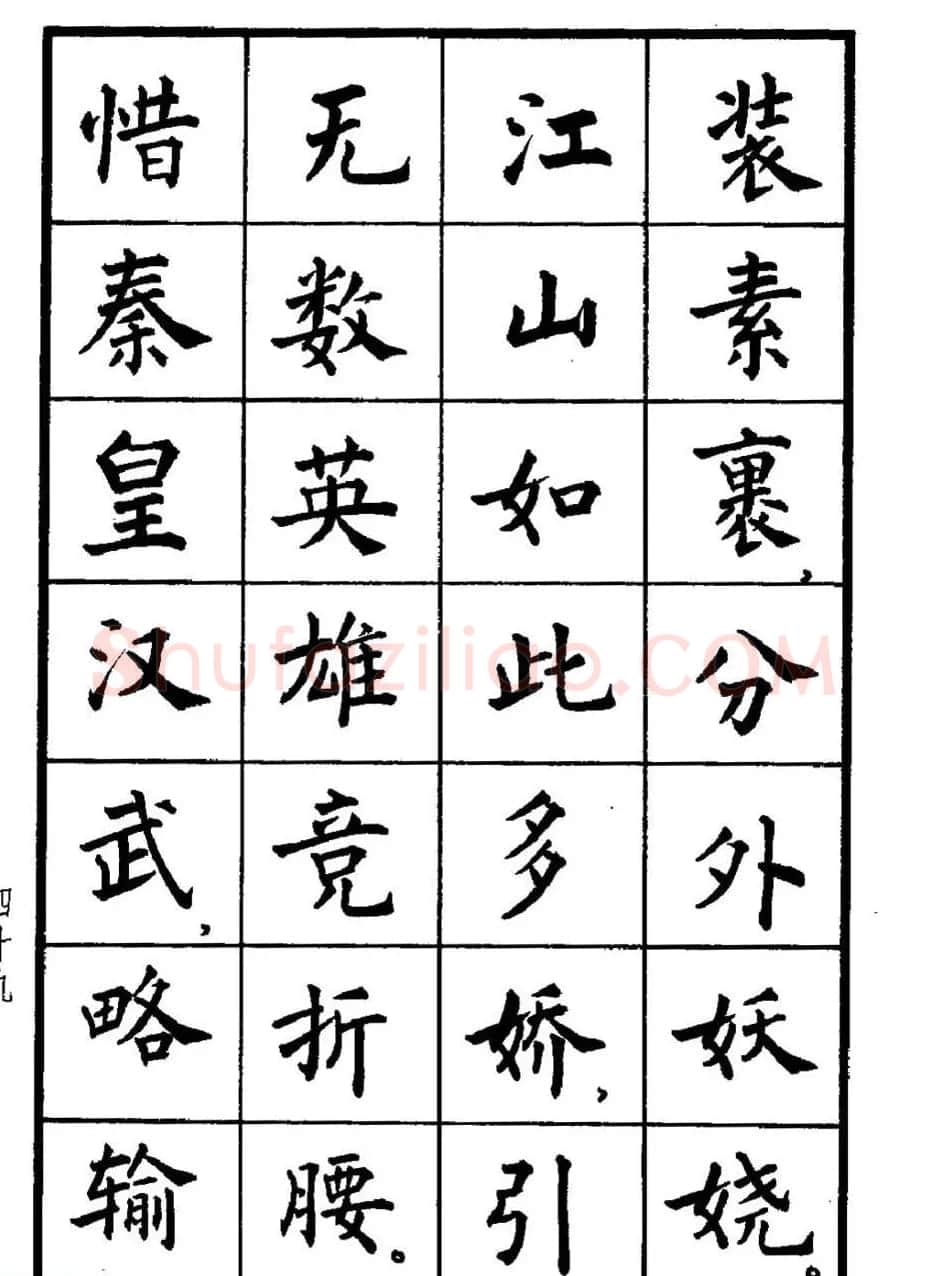 装素裹，分外妖娆。
江山如此多娇，引
无数英雄竞折腰。
惜秦皇汉武，略输
四十九
Shufaziliao.COM